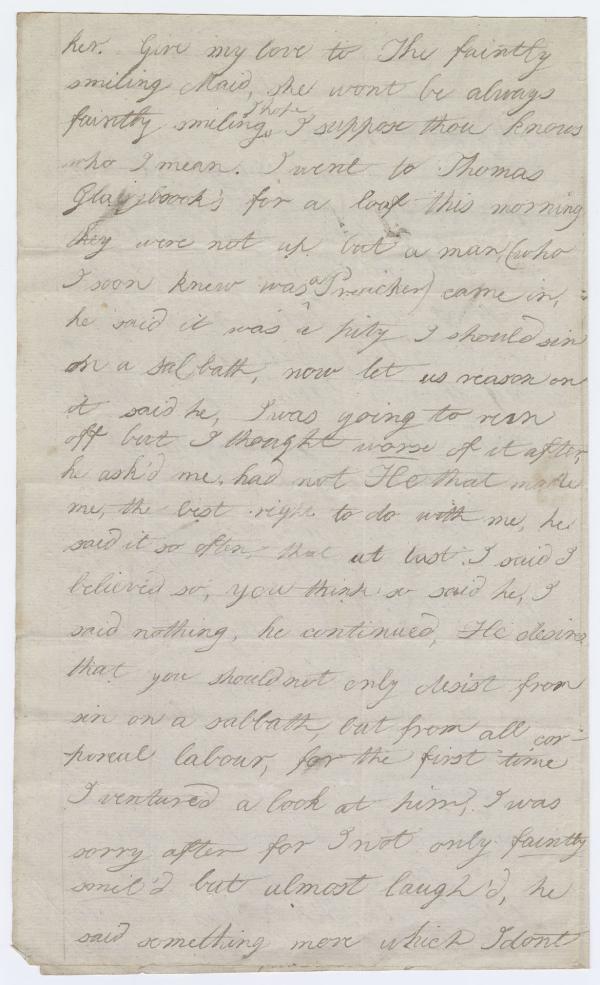 her. Give my love to The faintly
smiling Maid, she wont be always
faintly smiling I hope I suppose thou knows
who I mean. I went to Thomas
for a loaf this morning
they were not up but a man, (who
I soon knew was a Preacher) came in,
he said it was a pity I should sin
on a sabbath, now let us reason on
it said he, I was going to run
off but I thought worse of it after,
he ask'd me, had not He that made
me, the best right to do with me, he
said it so often, that at last I said I
believed so, you think so said he, I
said nothing, he continued, He desires
that you should not only desist from
sin on a sabbath, but from all cor-
poreal labour, for the first time
I ventured a look at him, I was
sorry after for I not only faintly
smil'd but almost laugh'd, he
said something more which I dont